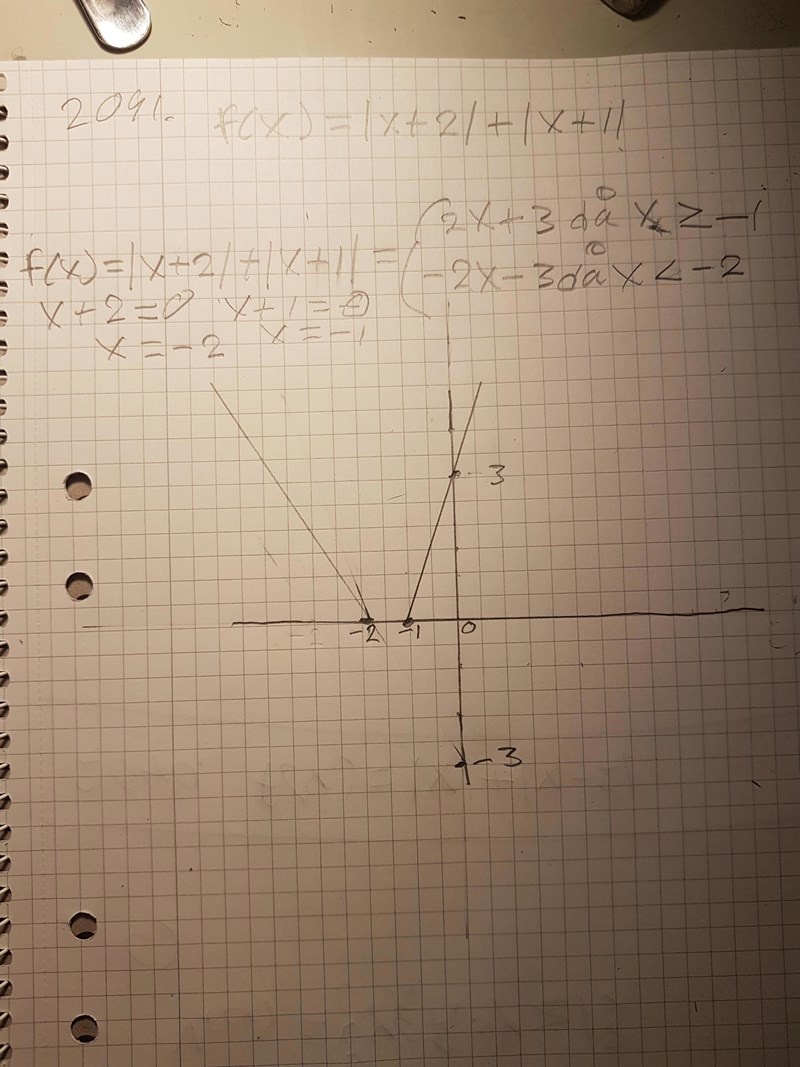 2091. f(x) = |x+2| + |x+1|
f(x) = |x+2| + |x+1| = { 2x+3 då x ≥ -1
-2x-3 då x < -2
x+2=0 x+1=0
x = -2 x = -1
3
-2 -1 0
-3